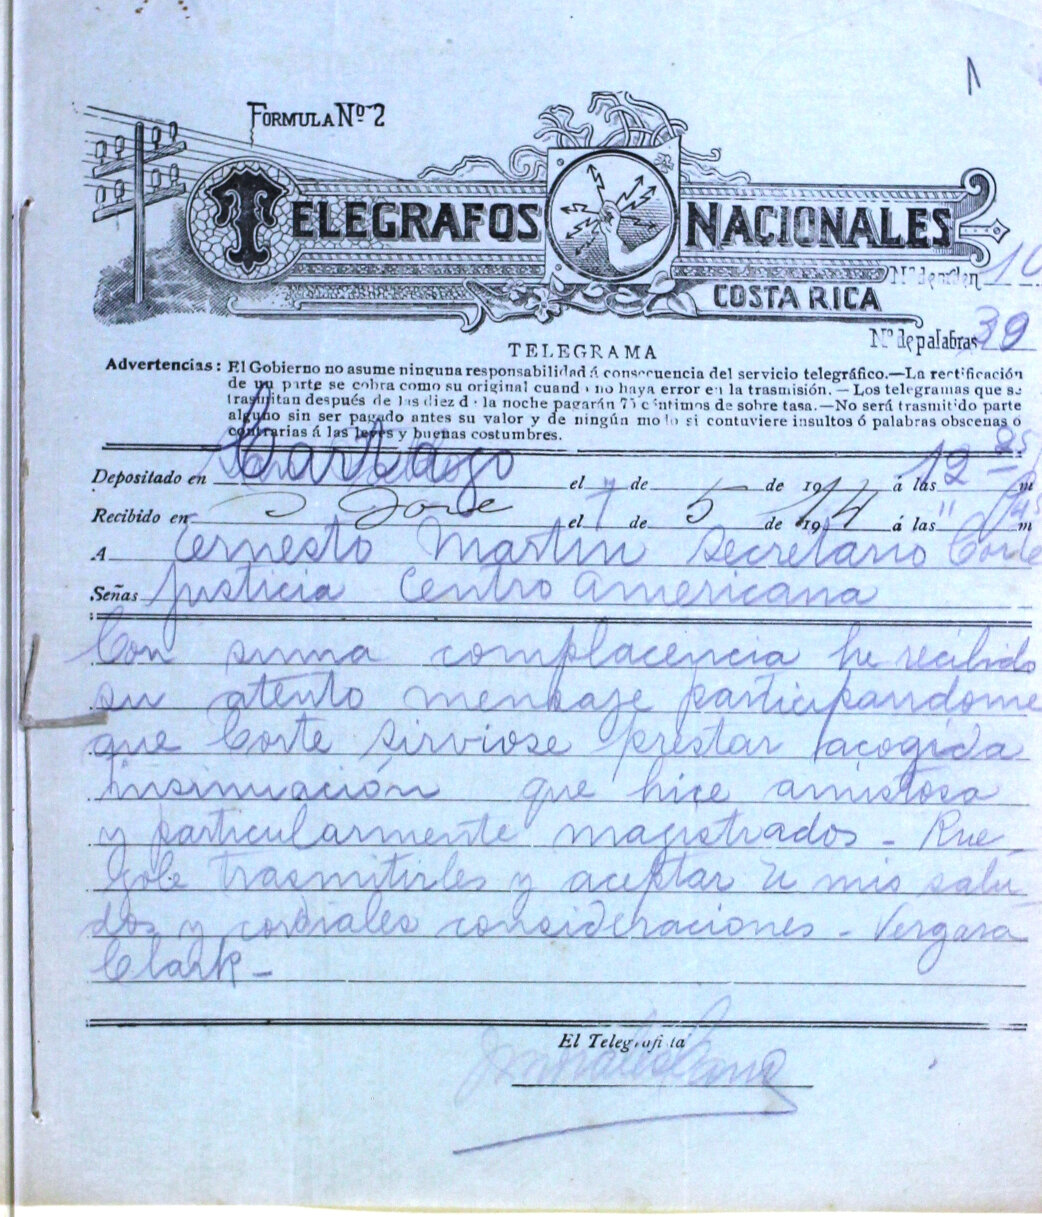 FÓRMULA Nº 2
TELEGRAFOS NACIONALES
COSTA RICA
Nº de orden 10
Nº de palabras 39
TELEGRAMA
Advertencias: El Gobierno no asume ninguna responsabilidad á consecuencia del servicio telegráfico.—La rectificación
de un parte se cobra como su original cuando no haya error en la trasmisión.—Los telegramas que se
trasmitan después de las diez de la noche pagarán 75 céntimos de sobre tasa.—No será trasmitido parte
alguno sin ser pagado antes su valor y de ningún modo si contuviere insultos ó palabras obscenas ó
contrarias á las leyes y buenas costumbres.
Depositado en Cartago el " de de 19 á las 12-25 m
Recibido en S José el 7 de 5 de 1914 á las " m
A Ernesto Martin Secretario Corte
Señas Justicia Centro Americana
Con suma complacencia he recibido
su atento mensaje participandome
que Corte sirviose prestar acogida
insinuación que hice amistosa
y particularmente magistrados - Rue
gole trasmitirles y aceptar U mis salu
dos y cordiales consideraciones - Vergara
Clark -
El Telegrafista